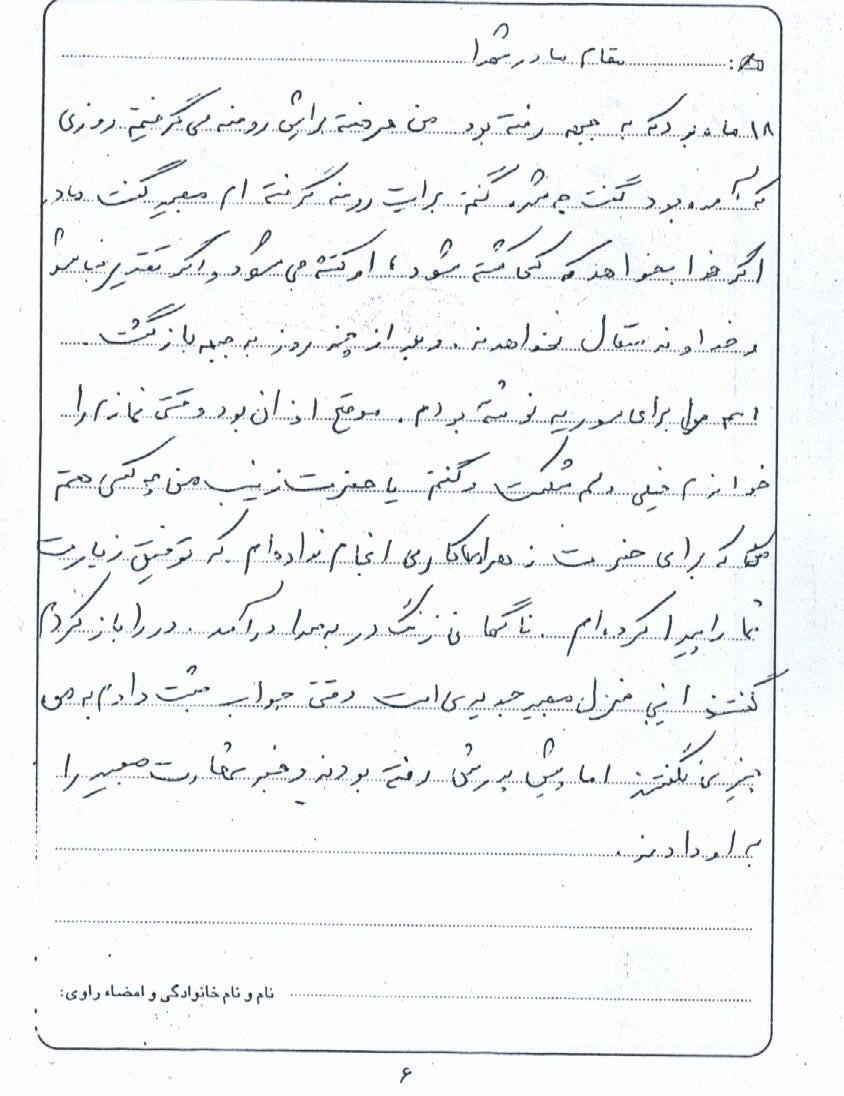 مقام مادر شهدا
۱۸ ماه بود که به جبهه رفته بود من هر هفته برایش روضه می گرفتیم روزی
که آمده بود گفت چه شده گفتم برایت روضه گرفته ام مجید گفت مادر
اگر خدا بخواهد که کسی کشته شود، او کشته می شود و اگر تقدیر نباشد
خداوند متعال نخواهد . و بعد از چند روز به جبهه بازگشت .
اسم برای سوریه نوشته بودم . موقع اذان بود وقتی نمازم را
خواندم خیلی دلم شکست و گفتم یا حضرت زینب من چه کسی هستم
که برای حضرت زهرا کاری انجام نداده ام که توفیق زیارت
شما را پیدا کرده ام . ناگهان زنگ در به صدا درآمد . در را باز کردم
گفتند این منزل مجید است وقتی جواب مثبت دادم به من
چیزی نگفتند اما پیش پدرش رفته بودند و خبر شهادت مجید را
به او دادند .
نام و نام خانوادگی و امضاء راوی:
۶